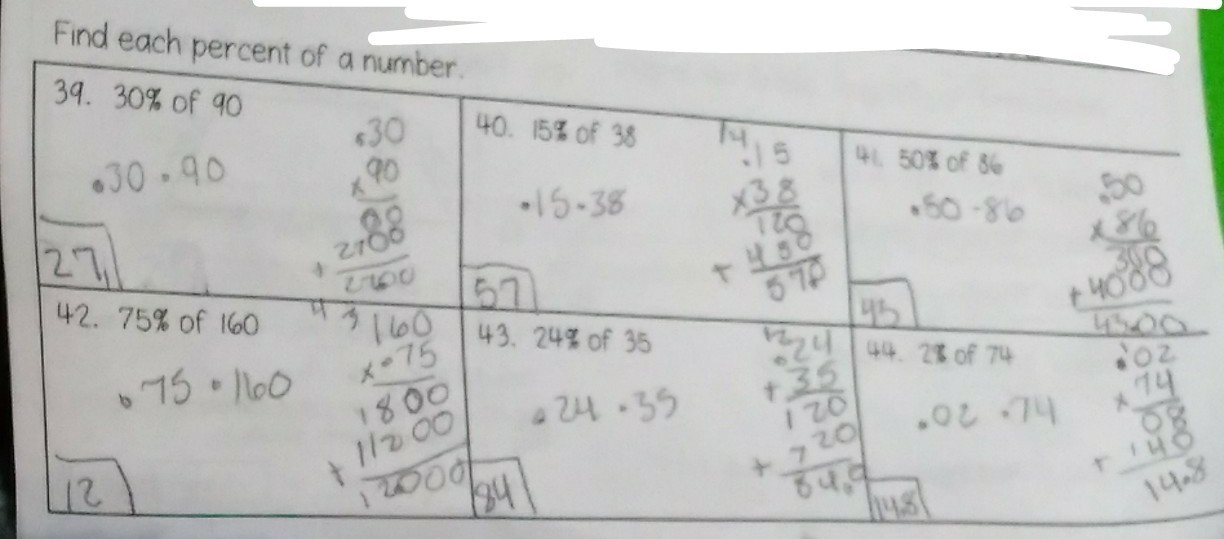 Find each percent of a number.
39. 30% of 90
.30 · 90
.30
x 90
00
+ 2700
2700
27
40. 15% of 38
.15 · 38
14
.15
x 38
120
+ 450
570
57
41. 50% of 86
.50 · 86
.50
x 86
300
+ 4000
43.00
43
42. 75% of 160
.75 · 160
4 3
160
x .75
1800
+ 11200
12000
12
43. 24% of 35
.24 · 35
.24
+ 35
120
+ 720
84.0
84
44. 2% of 74
.02 · 74
.02
x 74
08
+ 140
14.8
14.8